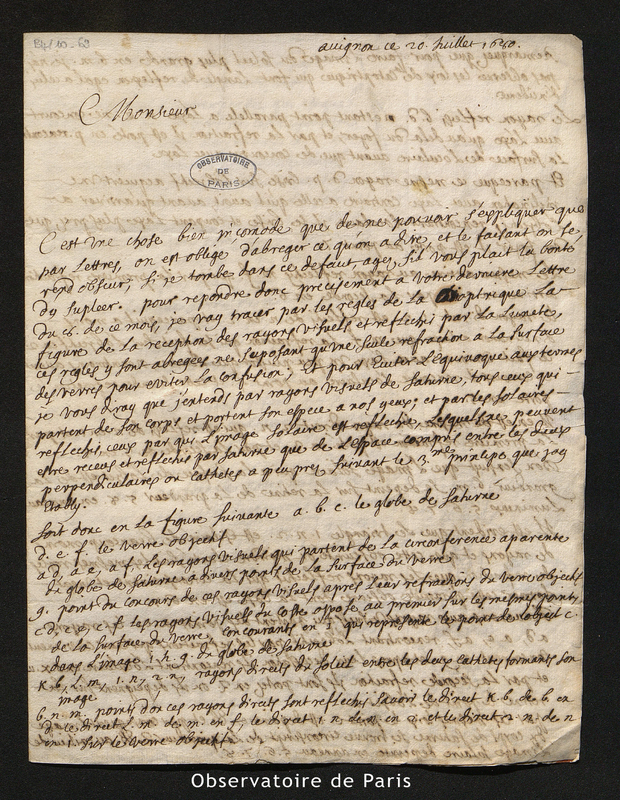 B4/10-69
avignon ce 20. Juillet 1680.
Monsieur
OBSERVATOIRE
DE
PARIS
C'est une chose bien incomode que de ne pouvoir s'expliquer que
par Lettres, on est oblegé d'abreger ce qu'on a dire, et le faisant on se
rend obscur. Si je tombe dans ce defaut ayes, s'il vous plait la bonté
dy supleer. pour repondre donc precisement a votre derniere Lettre
du de ce mois, je vay tracer par les regles de la dioptrique La
figure de La reception des rayons visuels et reflechis par la Lunete,
ces regles y sont abregees ne suposant qu'une seule refraction a la surface
des verres pour eviter La confusion, Et pour Eviter L'equivoque aux termes
je vous diray que j'entends par rayons visuels de saturne, tous ceux qui
partent de son corps et portent son espece a nos yeux; et par les solaires
reflechis, ceux par qui L'image solaire est reflechie, Lesquels ne peuvent
estre receus et reflechis par saturne que de L'espace compris entre les deux
perpendiculaires ou cathetes a peu pres suivant le 3.me principe que jay
Etably.
soit donc en La figure suivante a. b. c. le globe de saturne
d. e. f. le verre objectif
a d, a e, a f. Les rayons visuels qui partent de La circonference aparente
du globe de saturne a divers points de la surface du verre
g. point du concours de ces rayons visuels apres Leur refractions du verre objectif
c d, c e, c f. les rayons visuels du coste oposé au premier sur les mesmes points
de la surface du verre, concourants en qui represente le point de l'object c
dans L'image i. h. g. du globe de saturne
K b, L m, 1. n, 2 n, rayons directs du soleil entre les deux cathetes formants son
image
b. n. m. points d'ou ces rayons directs sont reflechis savoir le direct K. b. de b. en
d. le direct L. m. de m. en f. le direct 1. n. de n. en et le direct 2. n. de n
en sur le verre objectif.
Observatoire de Paris